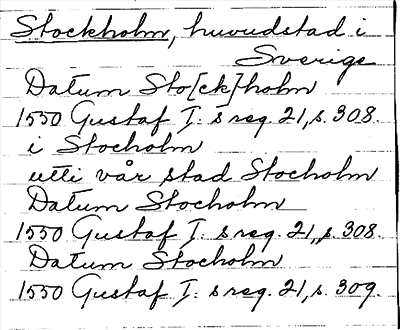 Stockholm, huvudstad i
Sverige
Datum Sto[ck]holm
1550 Gustaf I: s reg. 21, s. 308.
i Stocholm
utti vår stad Stocholm
Datum Stocholm
1550 Gustaf I: s reg. 21, s. 308.
Datum Stocholm
1550 Gustaf I: s reg. 21, s. 309.